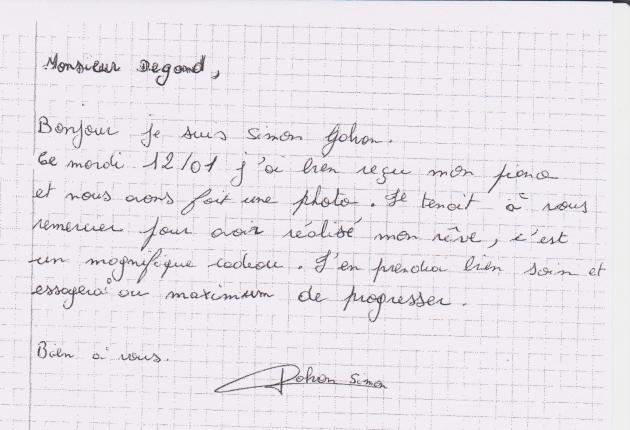 Monsieur Degand,
Bonjour je suis Simon Gohon.
Ce mardi 12/01 j'ai bien reçu mon piano
et nous avons fait une photo. Je tenait à vous
remercier pour avoir réalisé mon rêve, c'est
un magnifique cadeau. J'en prendrai bien soin et
essayerai au maximum de progresser.
Bien à vous.
Simon